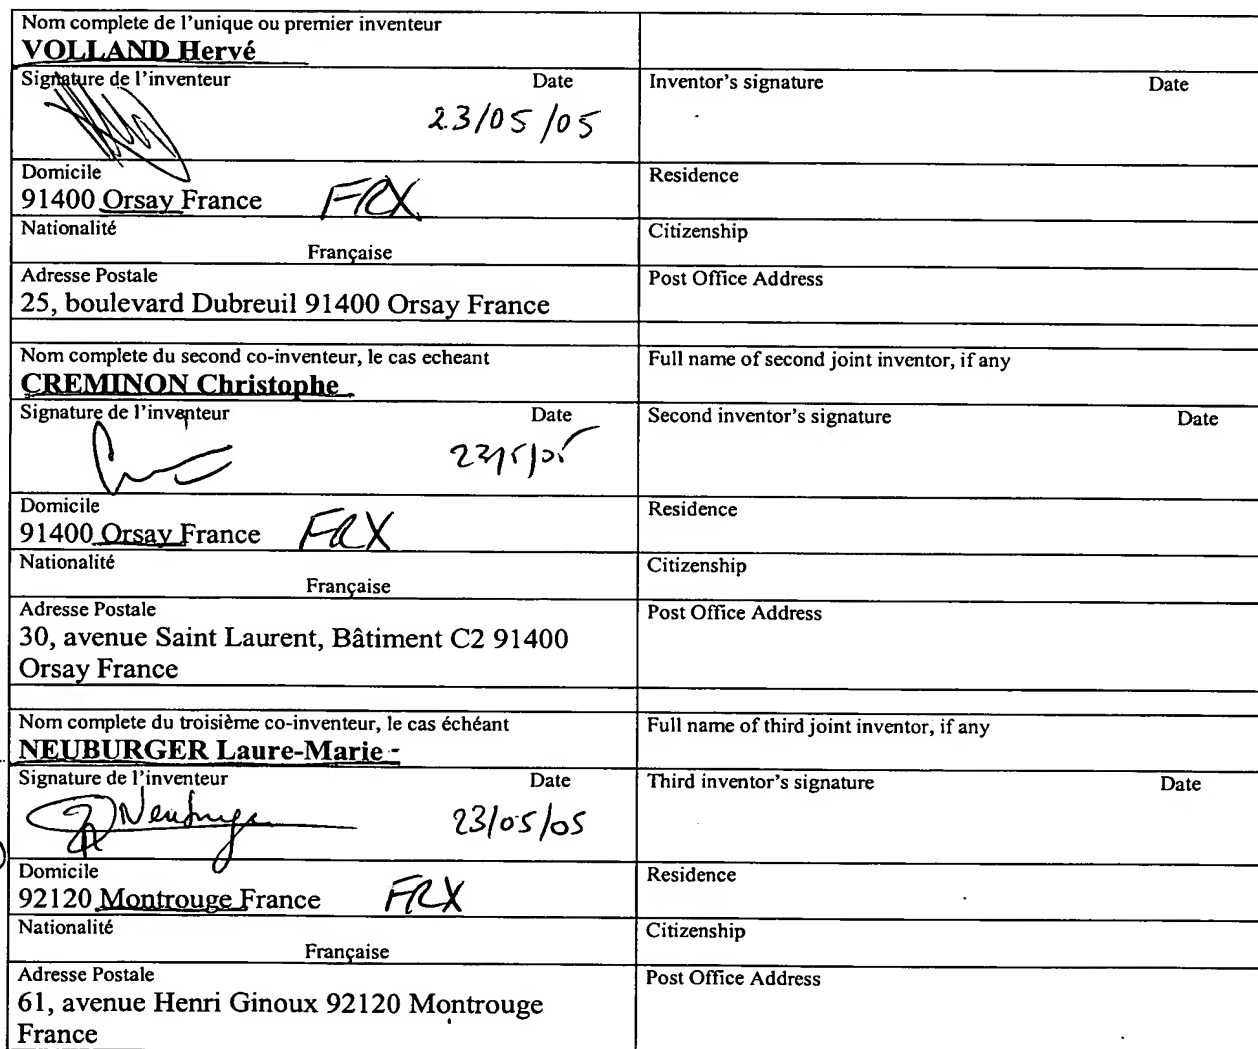 Nom complete de l'unique ou premier inventeur
VOLLAND Hervé
Signature de l'inventeur Date
Inventor's signature Date
23/05/05
Domicile
91400 Orsay France FRX
Residence
Nationalité
Française
Citizenship
Adresse Postale
25, boulevard Dubreuil 91400 Orsay France
Post Office Address
Nom complete du second co-inventeur, le cas echeant
CREMINON Christophe
Full name of second joint inventor, if any
Signature de l'inventeur Date
Second inventor's signature Date
Domicile
91400 Orsay France FRX
Residence
Nationalité
Française
Citizenship
Adresse Postale
30, avenue Saint Laurent, Bâtiment C2 91400
Orsay France
Post Office Address
Nom complete du troisième co-inventeur, le cas échéant
NEUBURGER Laure-Marie -
Full name of third joint inventor, if any
Signature de l'inventeur Date
Third inventor's signature Date
23/05/05
Domicile
92120 Montrouge France FRX
Residence
Nationalité
Française
Citizenship
Adresse Postale
61, avenue Henri Ginoux 92120 Montrouge
France
Post Office Address